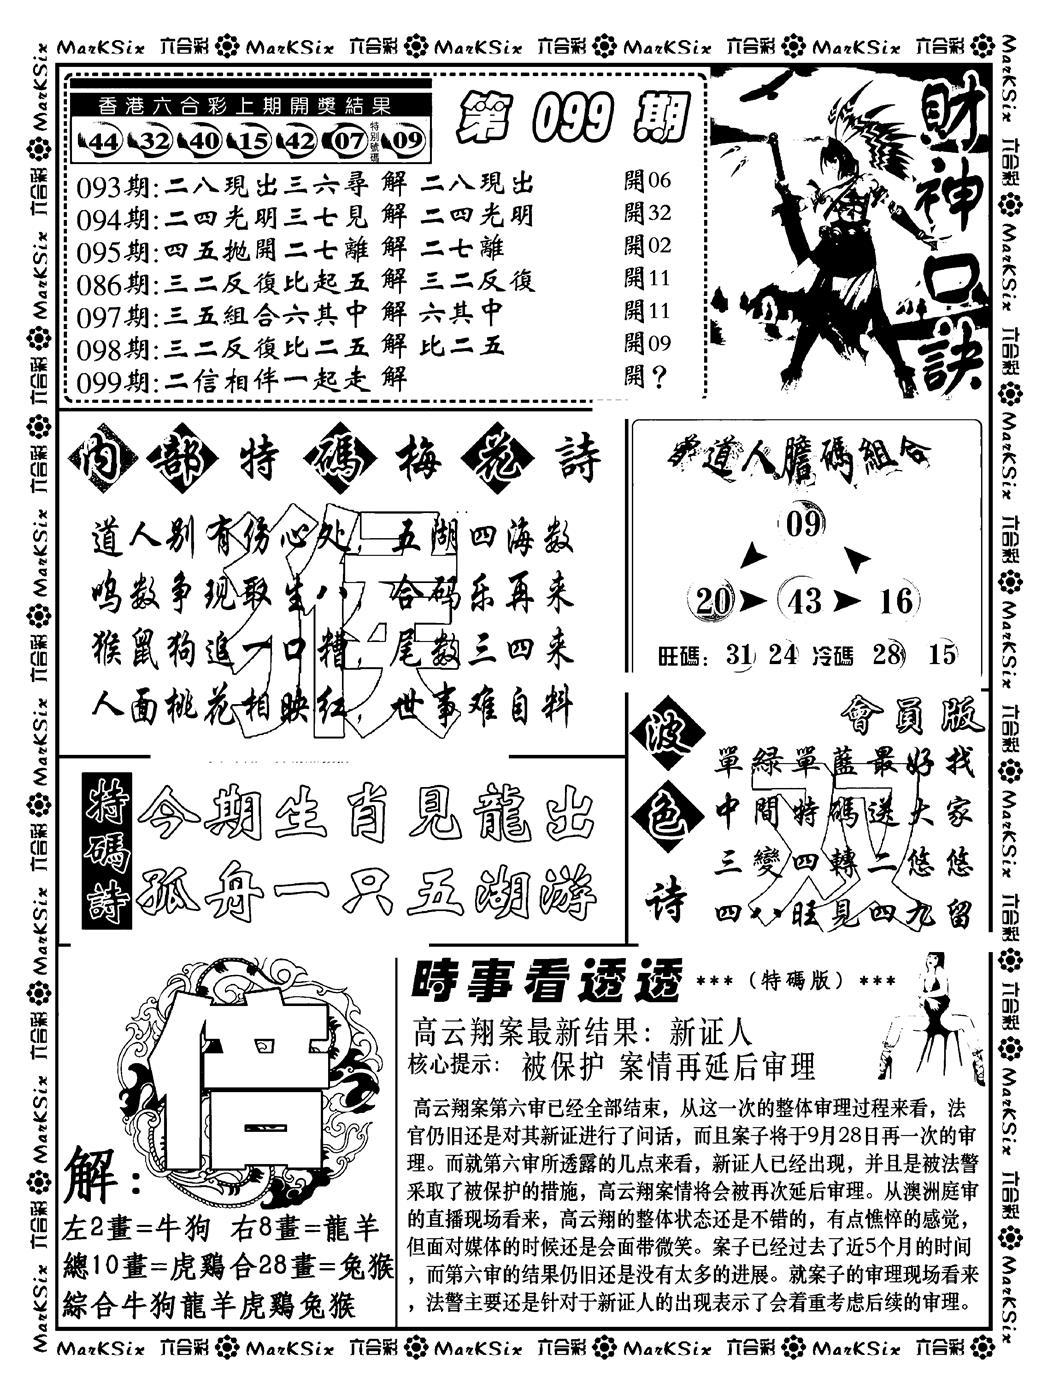 MarKSix 六合彩 MarKSix 六合彩 MarKSix 六合彩 MarKSix 六合彩 MarKSix 六合彩
香港六合彩上期開獎結果
44 32 40 15 42 07 特別號碼 09
第 099 期
093期:二八現出三六尋 解 二八現出 開06
094期:二四光明三七見 解 二四光明 開32
095期:四五抛開二七離 解 二七離 開02
086期:三二反復比起五 解 三二反復 開11
097期:三五組合六其中 解 六其中 開11
098期:三二反復比二五 解 比二五 開09
099期:二信相伴一起走 解 開？
財神口訣
内部特碼梅花詩
猴
道人别有傷心处，五湖四海数
鸣数争现取生八，合码乐再来
猴鼠狗追一口糟，尾数三四来
人面桃花相映红，世事难自料
道人膽碼組合
09
20 43 16
旺碼：31 24 冷碼 28 15
波色诗
會員版
双
單緑單藍最好找
中間特碼送大家
三變四轉二悠悠
四八旺見四九留
特碼詩
今期生肖見龍出
孤舟一只五湖游
信
解：
左2畫=牛狗 右8畫=龍羊
總10畫=虎鷄合28畫=兔猴
綜合牛狗龍羊虎鷄兔猴
時事看透透 ***（特碼版）***
高云翔案最新结果：新证人
核心提示： 被保护 案情再延后审理
高云翔案第六审已经全部结束，从这一次的整体审理过程来看，法
官仍旧还是对其新证进行了问话，而且案子将于9月28日再一次的审
理。而就第六审所透露的几点来看，新证人已经出现，并且是被法警
采取了被保护的措施，高云翔案情将会被再次延后审理。从澳洲庭审
的直播现场看来，高云翔的整体状态还是不错的，有点憔悴的感觉，
但面对媒体的时候还是会面带微笑。案子已经过去了近5个月的时间
，而第六审的结果仍旧还是没有太多的进展。就案子的审理现场看来
，法警主要还是针对于新证人的出现表示了会着重考虑后续的审理。
MarKSix 六合彩 MarKSix 六合彩 MarKSix 六合彩 MarKSix 六合彩 MarKSix 六合彩